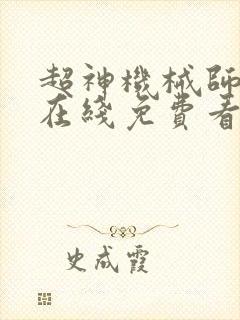 超神機械師
在綫免費看
史成霞